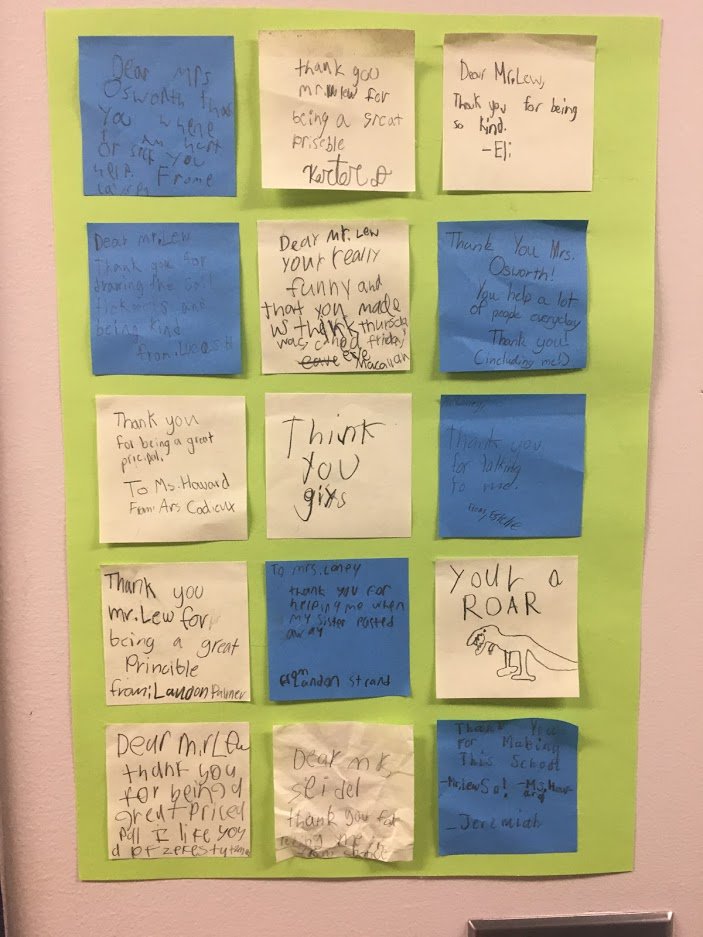 Dear Mrs
Osworth than
you where
I am hurt
or sick you
help. Frome
thank you
mr.lew for
being a great
priseble
Dear Mr.Lew,
Thank you for being
so kind.
-Eli
Dear mr.Lew
Thank you for
drawing the
and
being kind
from:
Dear mr. Lew
your really
funny and
that you made
us think thursday
was friday
eve
Macallan
Thank You Mrs.
Osworth!
You help a lot
of people everyday
Thank you!
(including me!)
Thank you
for being a great
pricipal.
To Ms.Howard
From: Ars Cadieux
Think
you
giys
Thank you
for talking
to me.
From,
Thank you
mr.Lew for
being a great
Princible
from: Landon Palmer
To mrs.Laney
thank you for
helping me when
my sister pasted
away
from
Landon Strand
your a
ROAR
Dear mr Lew
thank you
for being a
great prised
pall I like you
Dear mr.
Seidel
thank you for
Thank You
For Making
This School
-Mr.Lew So! -Ms.How-
ard
-Jeremiah